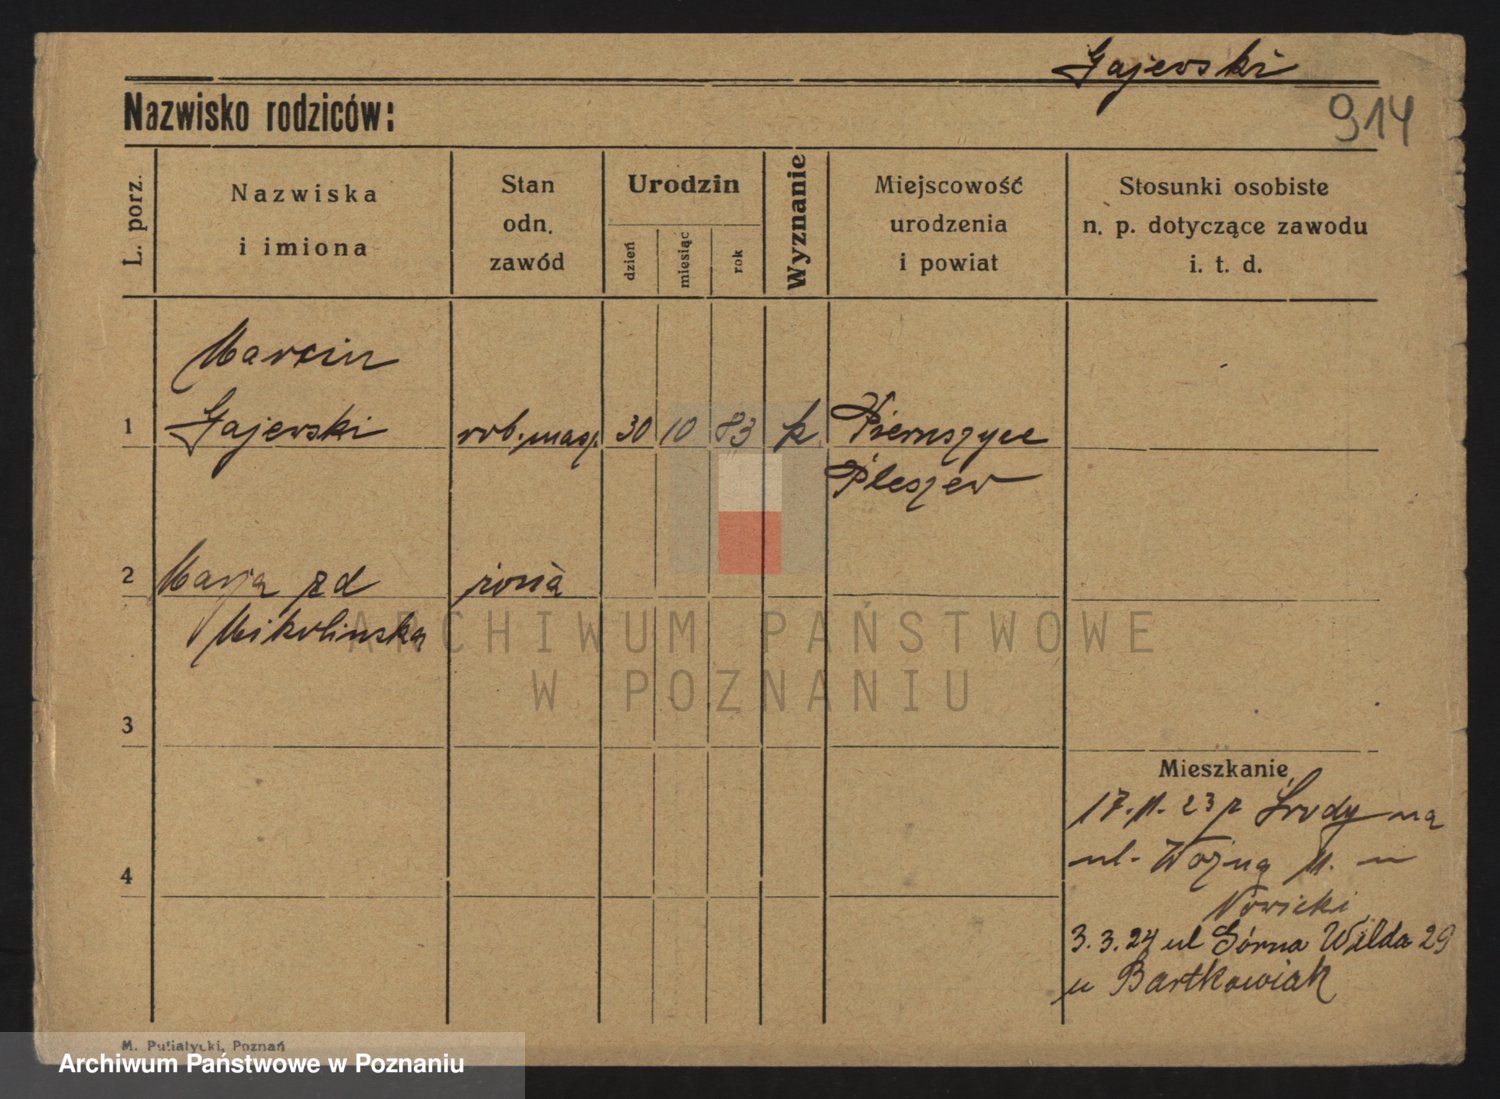 Gajewski
Nazwisko rodziców:
914
L. porz.
Nazwiska
i imiona
Stan
odn.
zawód
Urodzin
dzień
miesiąc
rok
Wyznanie
Miejscowość
urodzenia
i powiat
Stosunki osobiste
n. p. dotyczące zawodu
i. t. d.
Marcin
1 Gajewski rob. masz. 30 10 83 k. Pieruszyce
Pleszew
2 Marja zd żona
Mikolinska
ARCHIWUM PAŃSTWOWE
W POZNANIU
3
Mieszkanie
17.11.23 z Środy na
ul. 11. u
4
Nowicki
3.3.24 ul Górna Wilda 29
u Bartkowiak
M. Putiatycki, Poznań
Archiwum Państwowe w Poznaniu